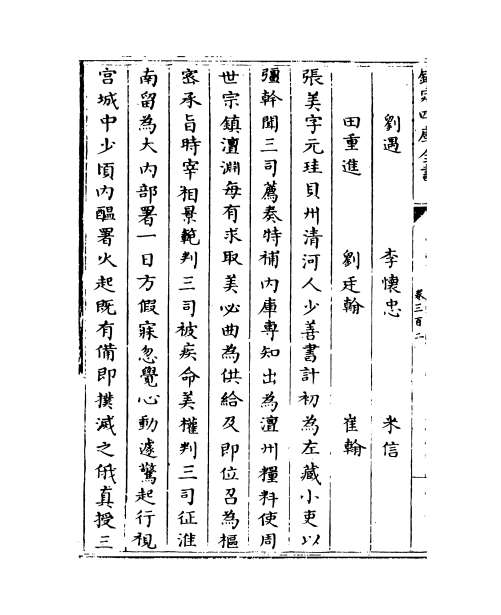 欽定四庫全書
卷三百二
劉遇　李懷忠　米信
田重進　劉廷翰　崔翰
張美字元珪貝州清河人少善書計初為左藏小吏以
彊幹聞三司薦奏特補內庫專知出為澶州糧料使周
世宗鎮澶淵每有求取美必曲為供給及即位召為樞
密承旨時宰相景範判三司被疾命美權判三司征淮
南留為大內部署一日方假寐忽覺心動遽驚起行視
宮城中少頃內醞署火起既有備即撲滅之俄真授三